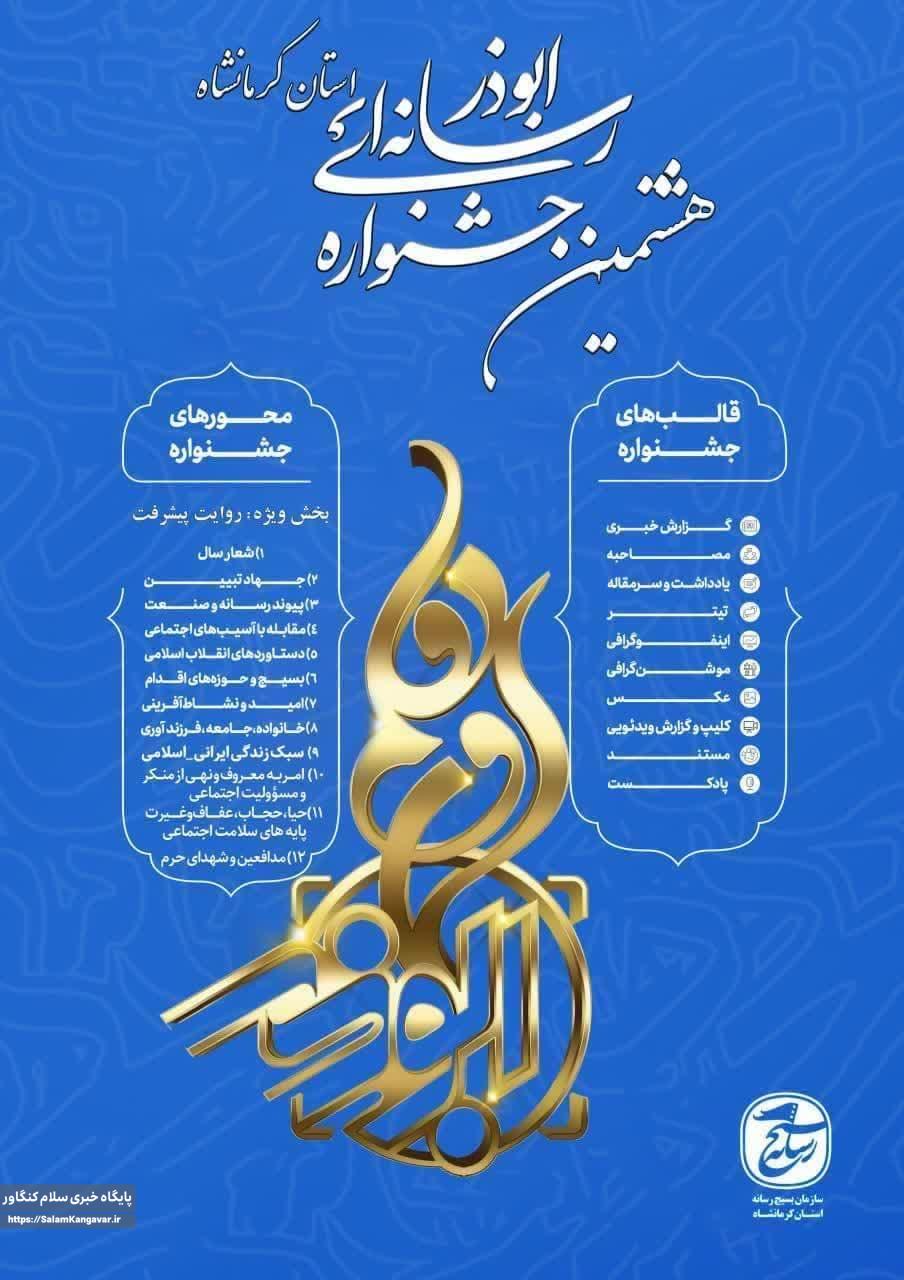 هشتمین جشنواره
رسانه‌ای
ابوذر
استان کرمانشاه
قالب‌های
جشنواره
گزارش خبری
مصاحبه
یادداشت و سرمقاله
تیتر
اینفوگرافی
موشن‌گرافی
عکس
کلیپ و گزارش ویدئویی
مستند
پادکست
محورهای
جشنواره
بخش ویژه: روایت پیشرفت
۱) شعار سال
۲) جهاد تبیین
۳) پیوند رسانه و صنعت
٤) مقابله با آسیب‌های اجتماعی
۵) دستاوردهای انقلاب اسلامی
٦) بسیج و حوزه‌های اقدام
۷) امید و نشاط‌آفرینی
۸) خانواده، جامعه، فرزندآوری
۹) سبک زندگی ایرانی_اسلامی
۱۰) امر به معروف و نهی از منکر
و مسؤولیت اجتماعی
۱۱) حیا، حجاب، عفاف و غیرت
پایه های سلامت اجتماعی
۱۲) مدافعین و شهدای حرم
بسیج
رسانه
سازمان بسیج رسانه
استان کرمانشاه
پایگاه خبری سلام کنگاور
https://SalamKangavar.ir